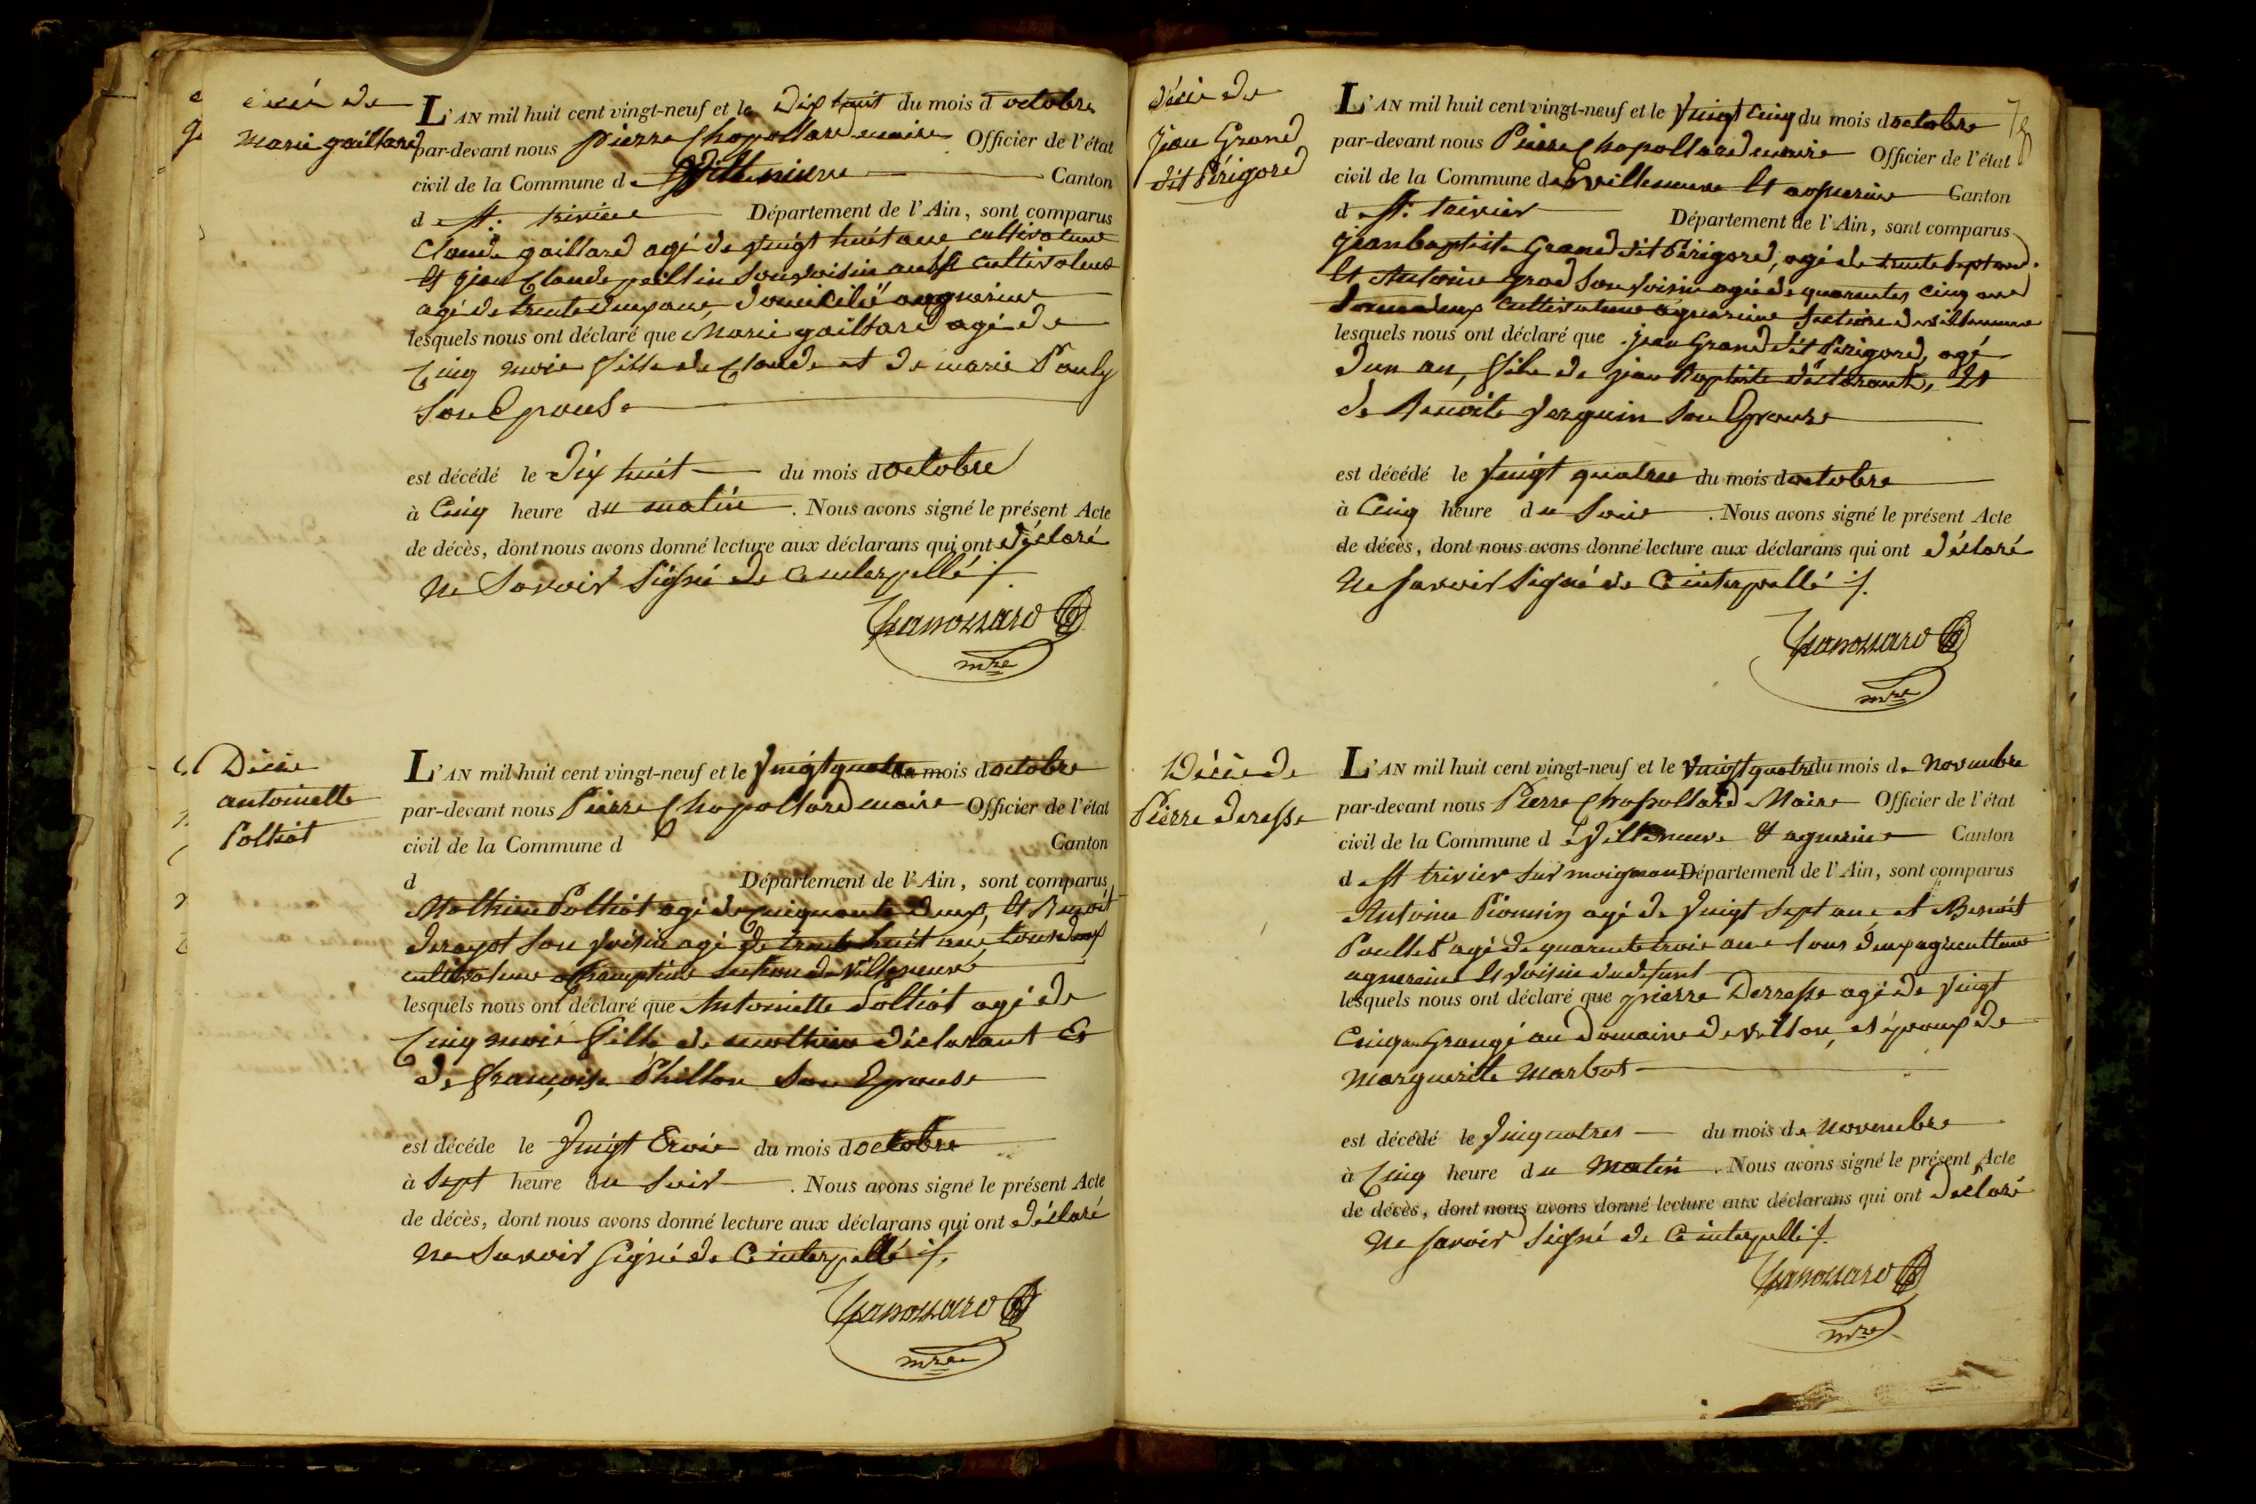 décès de
Marie gaillard
L'AN mil huit cent vingt-neuf et le dix huit du mois d octobre
par-devant nous pierre Chapollard maire Officier de l'état
civil de la Commune de Villeneuve Canton
de St. trivier Département de l'Ain, sont comparus
Claude gaillard agé de vingt huit ans cultivateur
et jean Claude paillin son voisin aussi cultivateur
agé de trente deux ans, domicilié agnerins
lesquels nous ont déclaré que Marie gaillard agé de
Cinq mois fille de Claude et de marie Pouly
Son Epouse
est décédé le dix huit du mois d octobre
à Cinq heure du matin. Nous avons signé le présent Acte
de décès, dont nous avons donné lecture aux déclarans qui ont déclaré
ne Savoir Signé de ce interpellé ./.
Chapollard
mre
Décès
antoinette
Polliot
L'AN mil huit cent vingt-neuf et le Vingt quatre du mois d octobre
par-devant nous Pierre Chapollard maire Officier de l'état
civil de la Commune d Canton
d Département de l'Ain, sont comparus
Mathieu Polliot agé de Cinquante deux, et Benoit
derayot Son Voisin agé de trente huit ans, tous deux
cultivateur a Champtein Section de Villeneuve
lesquels nous ont déclaré que Antoinette Polliot agé de
Cinq mois fille de mathieu déclarant Et
de françoise Philbon Son Epouse
est décédé le Vingt trois du mois d octobre
à Sept heure du Soir. Nous avons signé le présent Acte
de décès, dont nous avons donné lecture aux déclarans qui ont déclaré
Ne Savoir Signé de Ce interpellé ./.
Chapollard
mre
78
Décès de
jean Grand
dit Périgord
L'AN mil huit cent vingt-neuf et le Vingt Cinq du mois d octobre
par-devant nous Pierre Chapollard maire Officier de l'état
civil de la Commune de Villeneuve Et agnerins Canton
de St. trivier Département de l'Ain, sont comparus
jean baptiste Grand dit Périgord, agé de trente sept ans
Et Antoine Son Voisin agé de quarantes cinq ans
tous deux cultivateurs agnereins Section de villeneuve
lesquels nous ont déclaré que jean Grand dit Périgord, agé
d'un an, fils de jean Baptiste déclarant, Et
de Benoite Verguin Son Epouse
est décédé le Vingt quatre du mois d octobre
à Cinq heure du Soir. Nous avons signé le présent Acte
de décès, dont nous avons donné lecture aux déclarans qui ont déclaré
Ne Savoir Signé de Ce interpellé ./.
Chapollard
mre
Décès de
Pierre deresse
L'AN mil huit cent vingt-neuf et le Vingt quatre du mois de Novembre
par-devant nous Pierre Chapollard Maire Officier de l'état
civil de la Commune d e Villeneuve & agnerins Canton
de St trivier Sur moignans Département de l'Ain, sont comparus
Antoine agé de Vingt Sept ans et Benoit
Poullet agé de quarante trois ans tous deux agriculteur
agnereins Et Voisin du defunt
lesquels nous ont déclaré que pierre Derresse agé de Vingt
Cinq ans Grangé au Domaine de Villon, et époux de
Marguerite Marbot
est décédé le Vinquatres du mois de Novembre
à Cinq heure du Matin. Nous avons signé le présent Acte
de décès, dont nous avons donné lecture aux déclarans qui ont declaré
Ne Savoir Signé de Ce interpellé ./.
Chapollard
mre